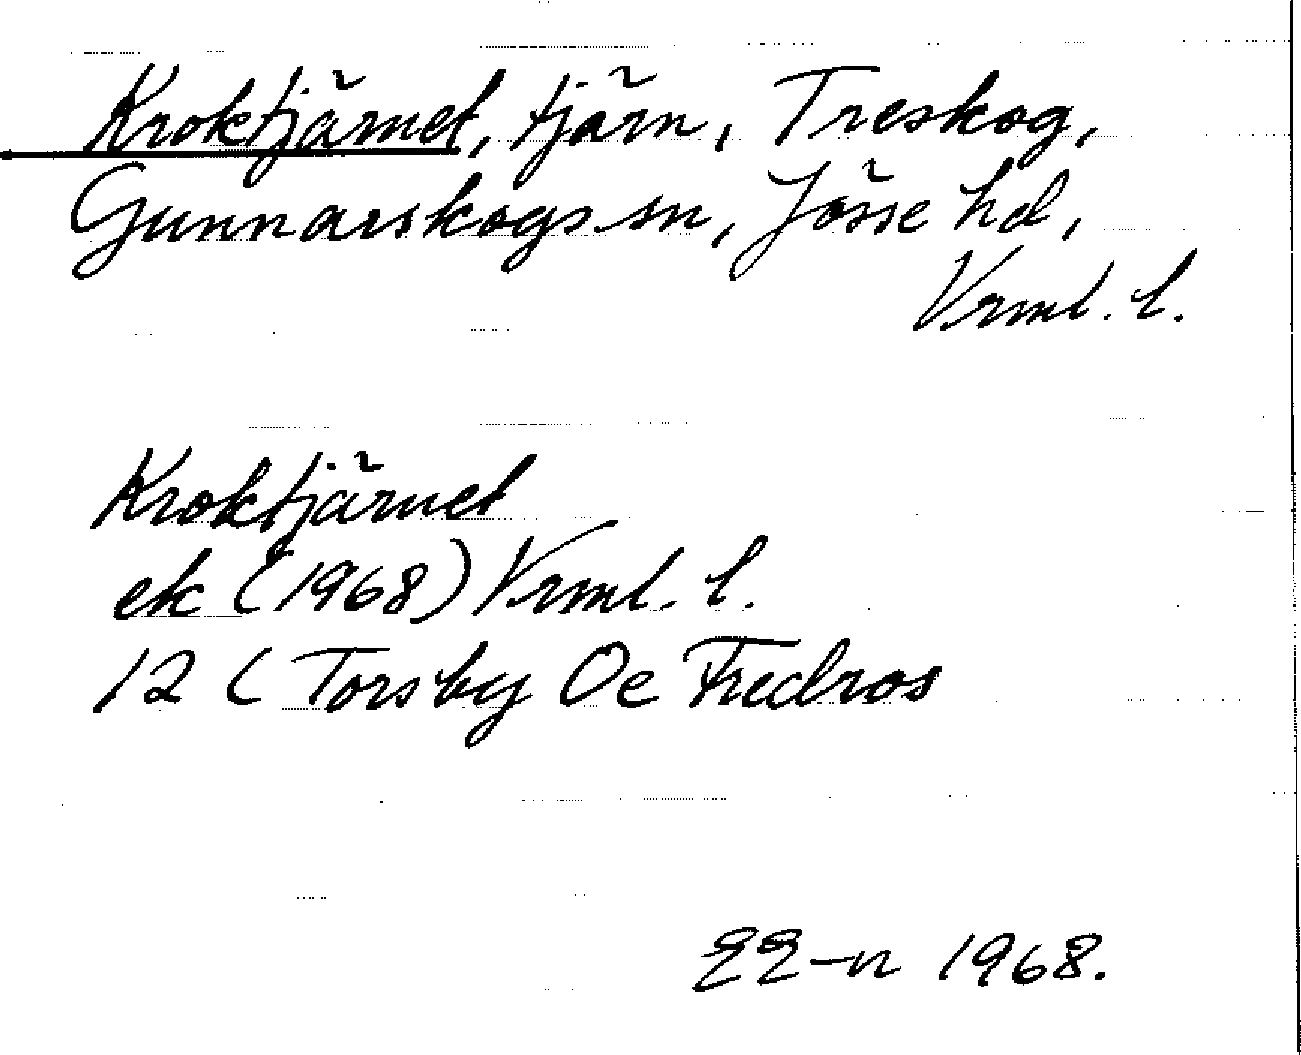 Kroktjärnet, tjärn, Treskog,
Gunnarskogs sn, Jösse hd,
Vrml. l.
Kroktjärnet
ek (1968) Vrml. l.
12 C Torsby Oe Fredros
EE-n 1968.